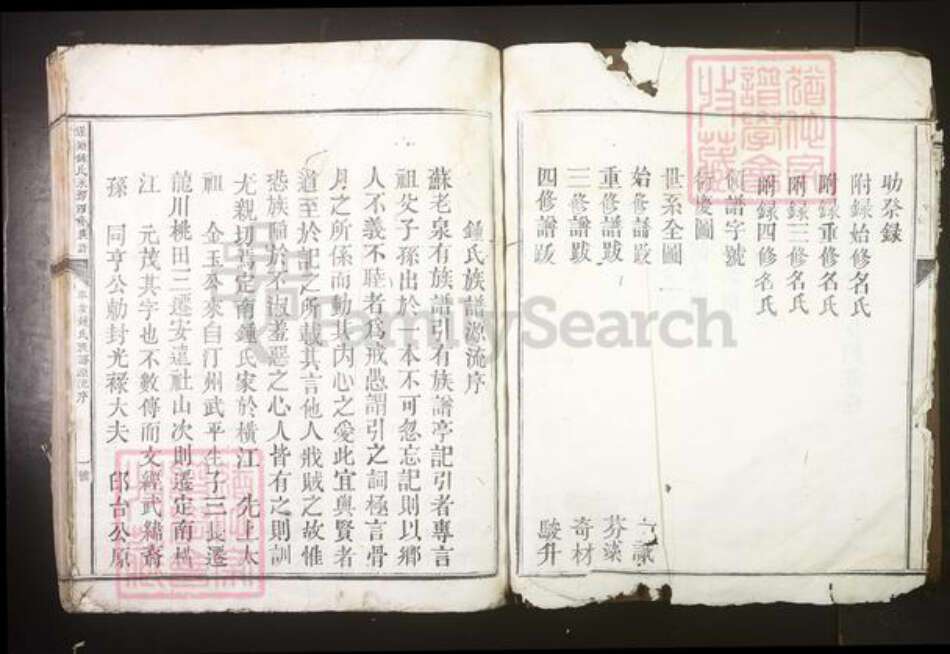 助祭録
附録始修名氏
附録重修名氏
附録三修名氏
附録四修名氏
譜字號
慶圖
世系全圖
始修譜跋
重修譜跋 芬
三修譜跋 奇材
四修譜跋 駿升
鍾氏族譜源流序
蘇老泉有族譜引有族譜亭記引者專言
祖父子孫出於一本不可忽忘記則以鄉
人不義不睦者為戒愚謂引之詞極言骨
月之所係而動其内心之愛此宜與賢者
道至於記之所載其言他人戕賊之故惟
恐族隣於不淑羞惡之心人皆有之則訓
尤親切焉定南鍾氏家於橫江 先上太
祖 金玉公來自汀州武平生子三長遷
龍川桃田三遷安遠社山次則遷定南橫
江 元茂其字也不數傳而文經武緯裔
孫 同亨公勅封光祿大夫 邱台公原
號
FamilySearch